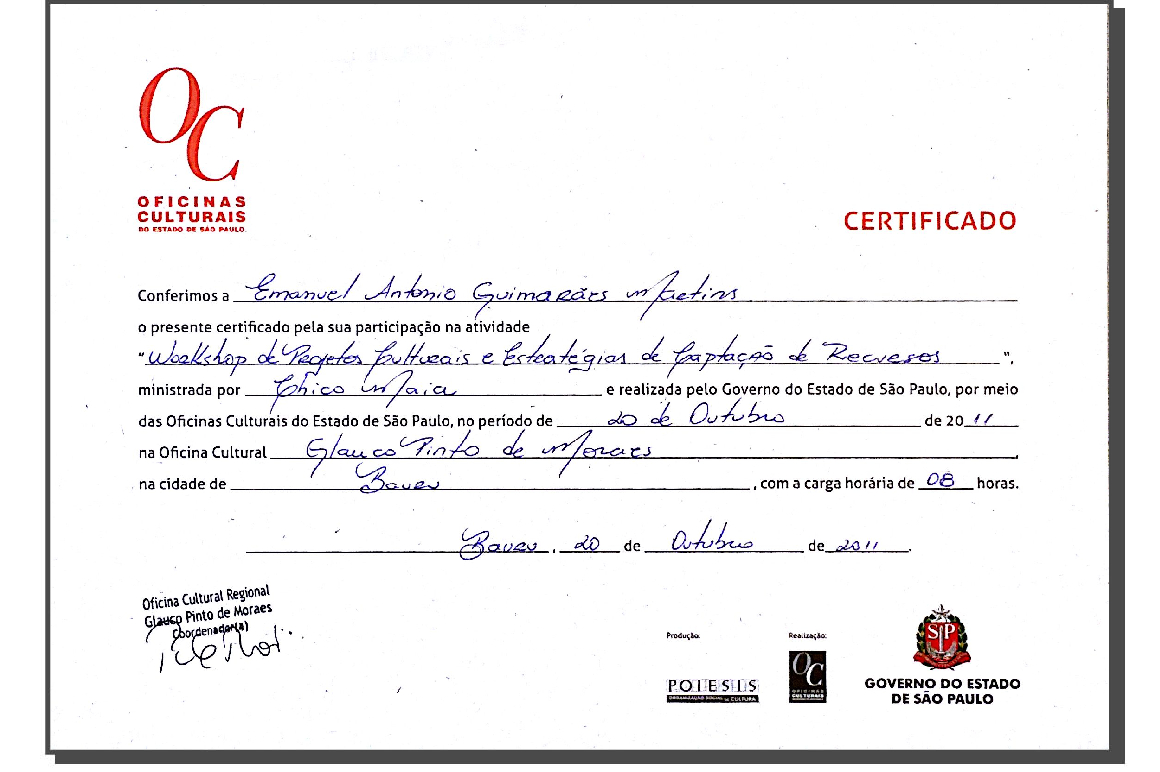 OC
OFICINAS
CULTURAIS
DO ESTADO DE SÃO PAULO
CERTIFICADO
Conferimos a Emanuel Antonio Guimarães Martins
o presente certificado pela sua participação na atividade
"Workshop de Projetos Culturais e Estratégias de Captação de Recursos",
ministrada por Chico Maia e realizada pelo Governo do Estado de São Paulo, por meio
das Oficinas Culturais do Estado de São Paulo, no período de 20 de Outubro de 2011
na Oficina Cultural Glauco Pinto de Moraes,
na cidade de Bauru, com a carga horária de 08 horas.
Bauru, 20 de Outubro de 2011.
Oficina Cultural Regional
Glauco Pinto de Moraes
Coordenador(a)
Produção:
Realização:
POIESIS
ORGANIZAÇÃO SOCIAL DE CULTURA
OC
OFICINAS
CULTURAIS
SP
GOVERNO DO ESTADO
DE SÃO PAULO